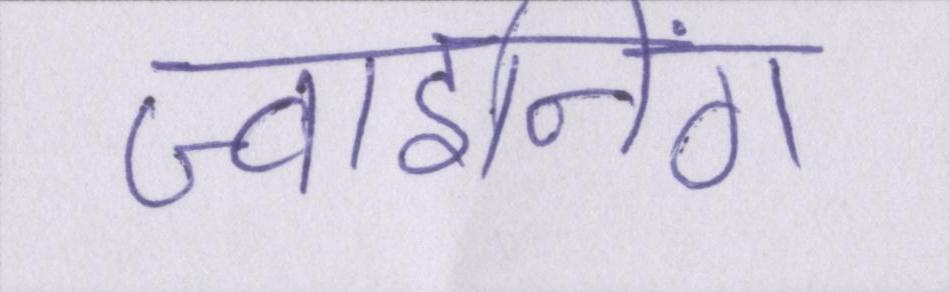 ज्वाइनिंग